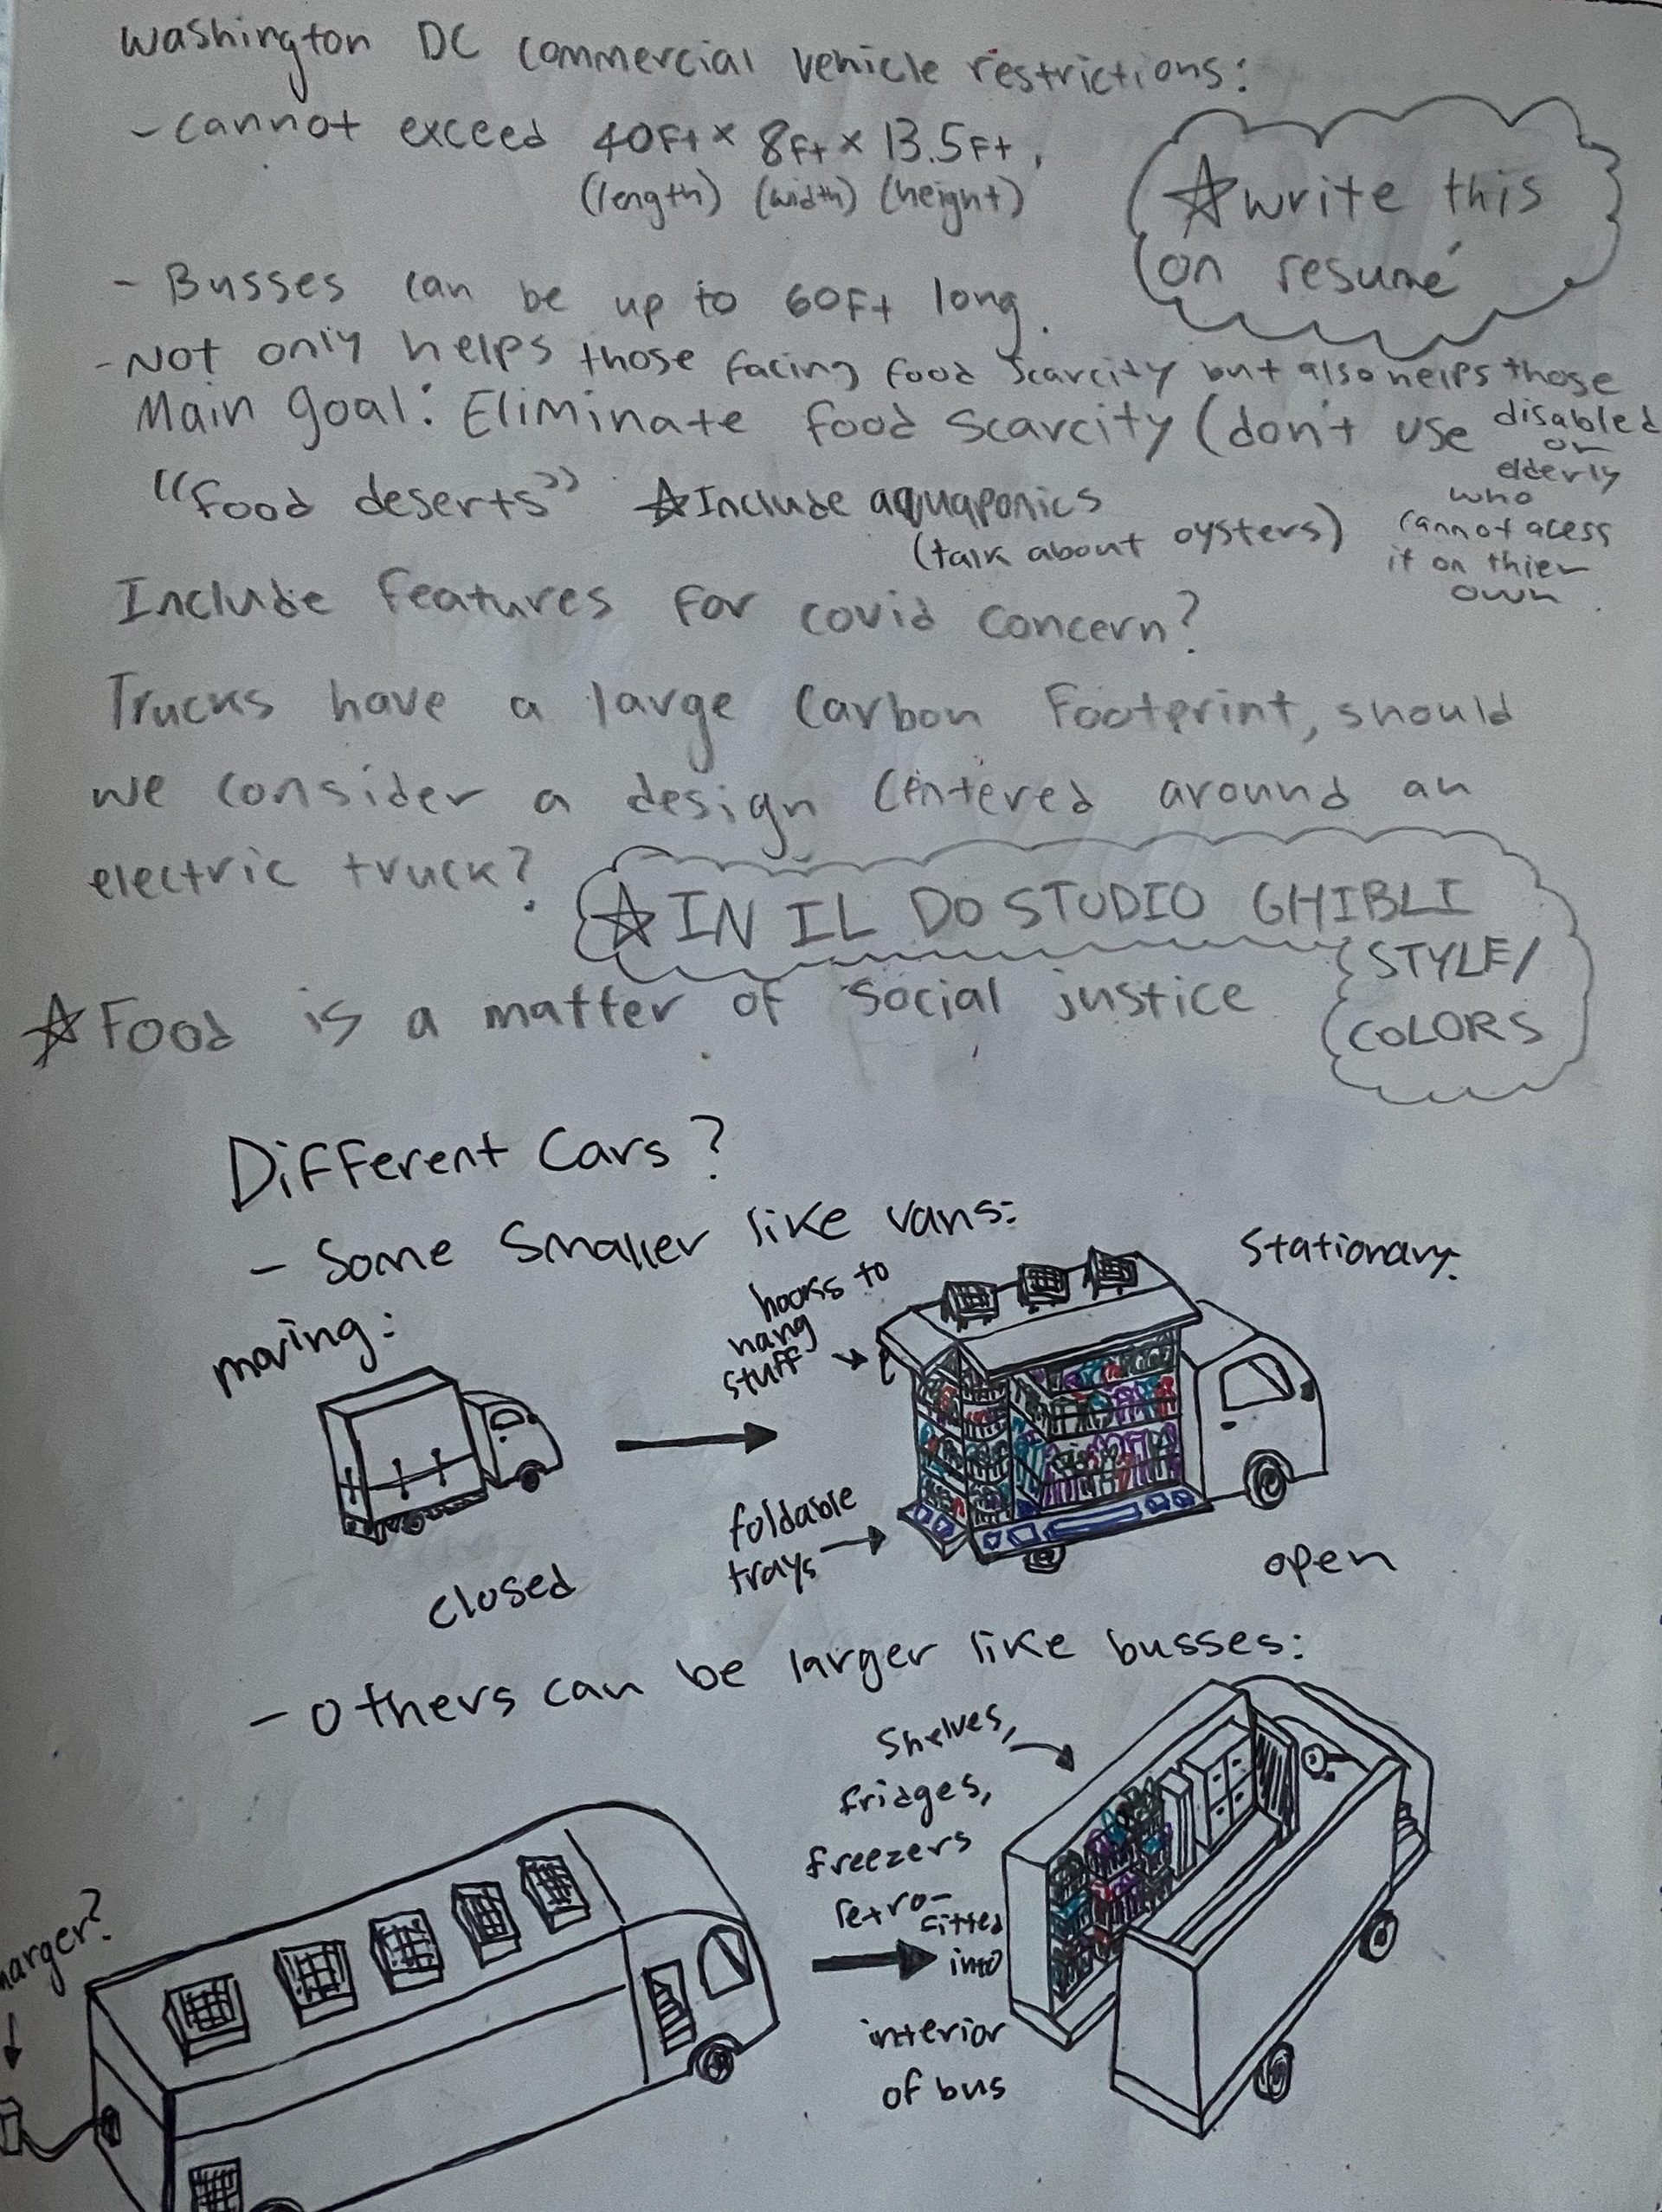 Washington DC commercial vehicle restrictions:
- cannot exceed 40Ft x 8Ft x 13.5Ft,
(length) (width) (height)
☆write this
on resumé
- Busses can be up to 60Ft long.
- Not only helps those facing food scarcity but also helps those
disabled
or
elderly
who
cannot acess
it on thier
own.
Main goal: Eliminate food scarcity (don't use
"food deserts" ☆Include aquaponics
(talk about oysters)
Include features for covid concern?
Trucks have a large carbon footprint, should
we consider a design centered around an
electric truck?
☆IN IL DO STUDIO GHIBLI
STYLE/
COLORS
☆Food is a matter of social justice
Different Cars?
- Some smaller like vans:
moving:
hooks to
hang
stuff
Stationary:
foldable
trays
closed
open
- others can be larger like busses:
Shelves,
fridges,
freezers
retro-
fitted
into
interior
of bus
harger?